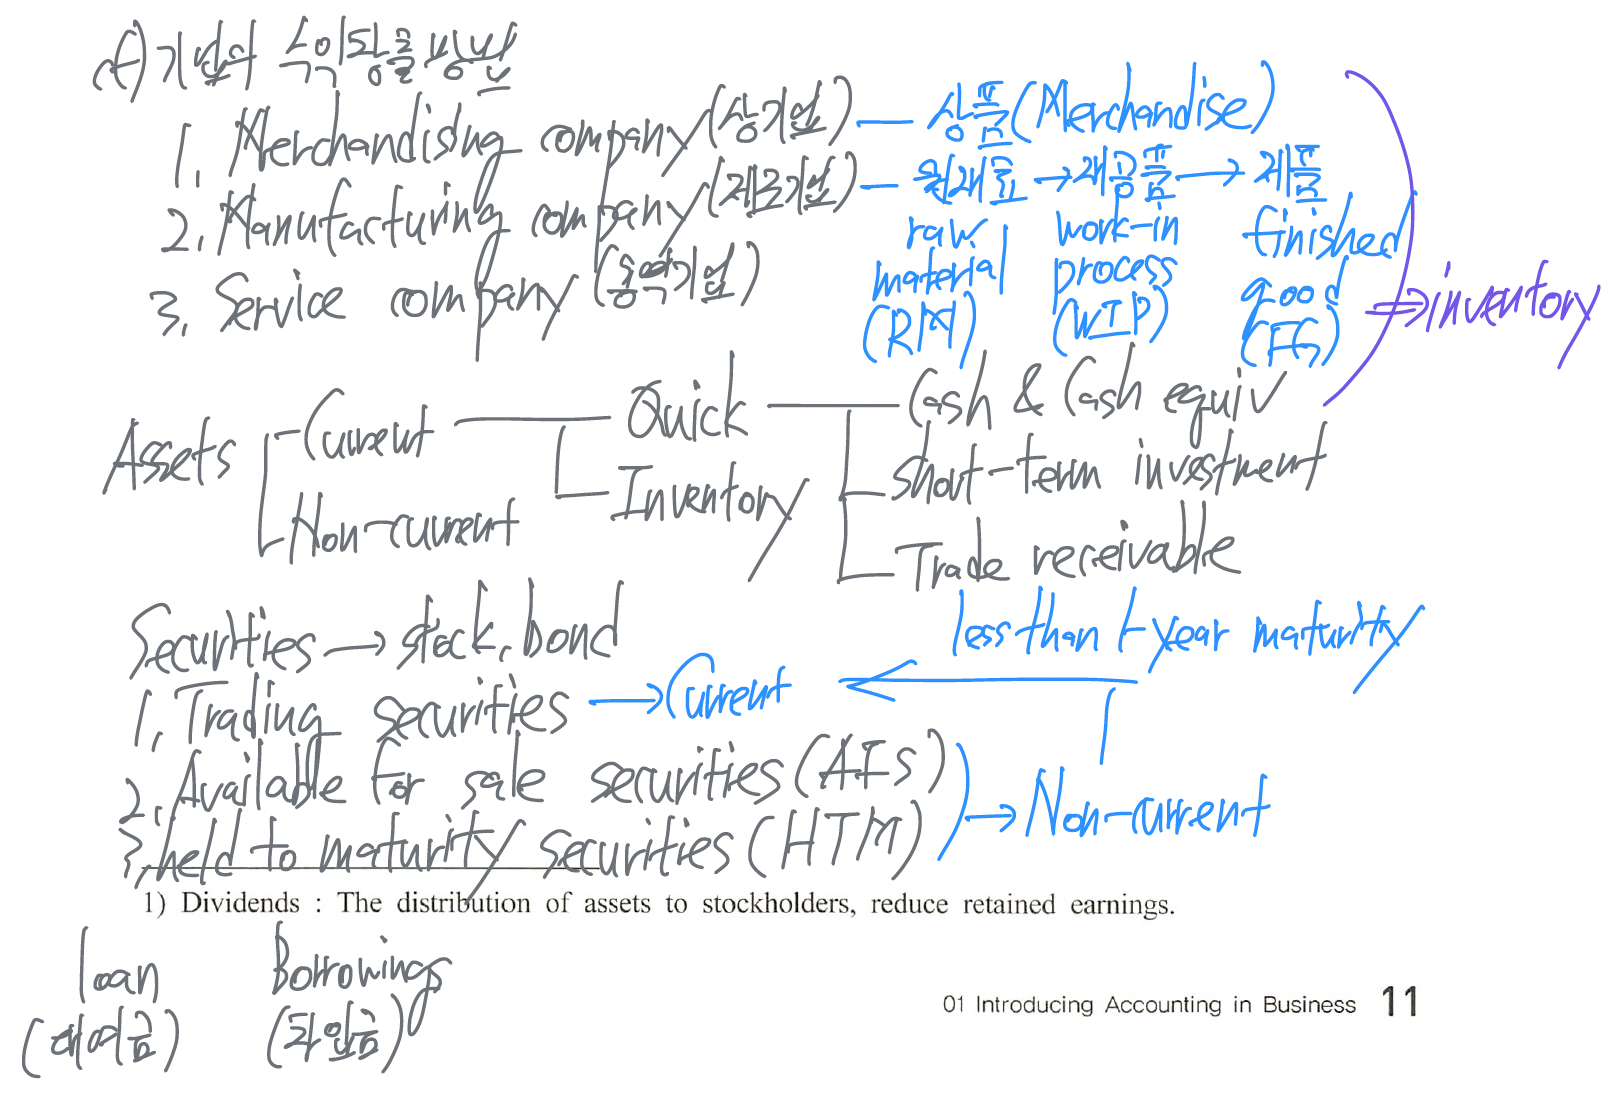 cf) 기업의 수익창출방법
1. Merchandising company (상기업) — 상품 (Merchandise)
2. Manufacturing company (제조기업) — 원재료 → 재공품 → 제품
raw material (RM) work-in process (WIP) finished good (FG)
⇒ inventory
3. Service company (용역기업)
Assets Current Quick Cash & Cash equiv
Non-current Inventory short-term investment
Trade receivable
Securities → stock, bond less than 1-year maturity
1. Trading securities → Current
2. Available for sale securities (AFS)
3. held to maturity securities (HTM) → Non-current
1) Dividends : The distribution of assets to stockholders, reduce retained earnings.
loan Borrowings
(대여금) (차입금)
01 Introducing Accounting in Business 11